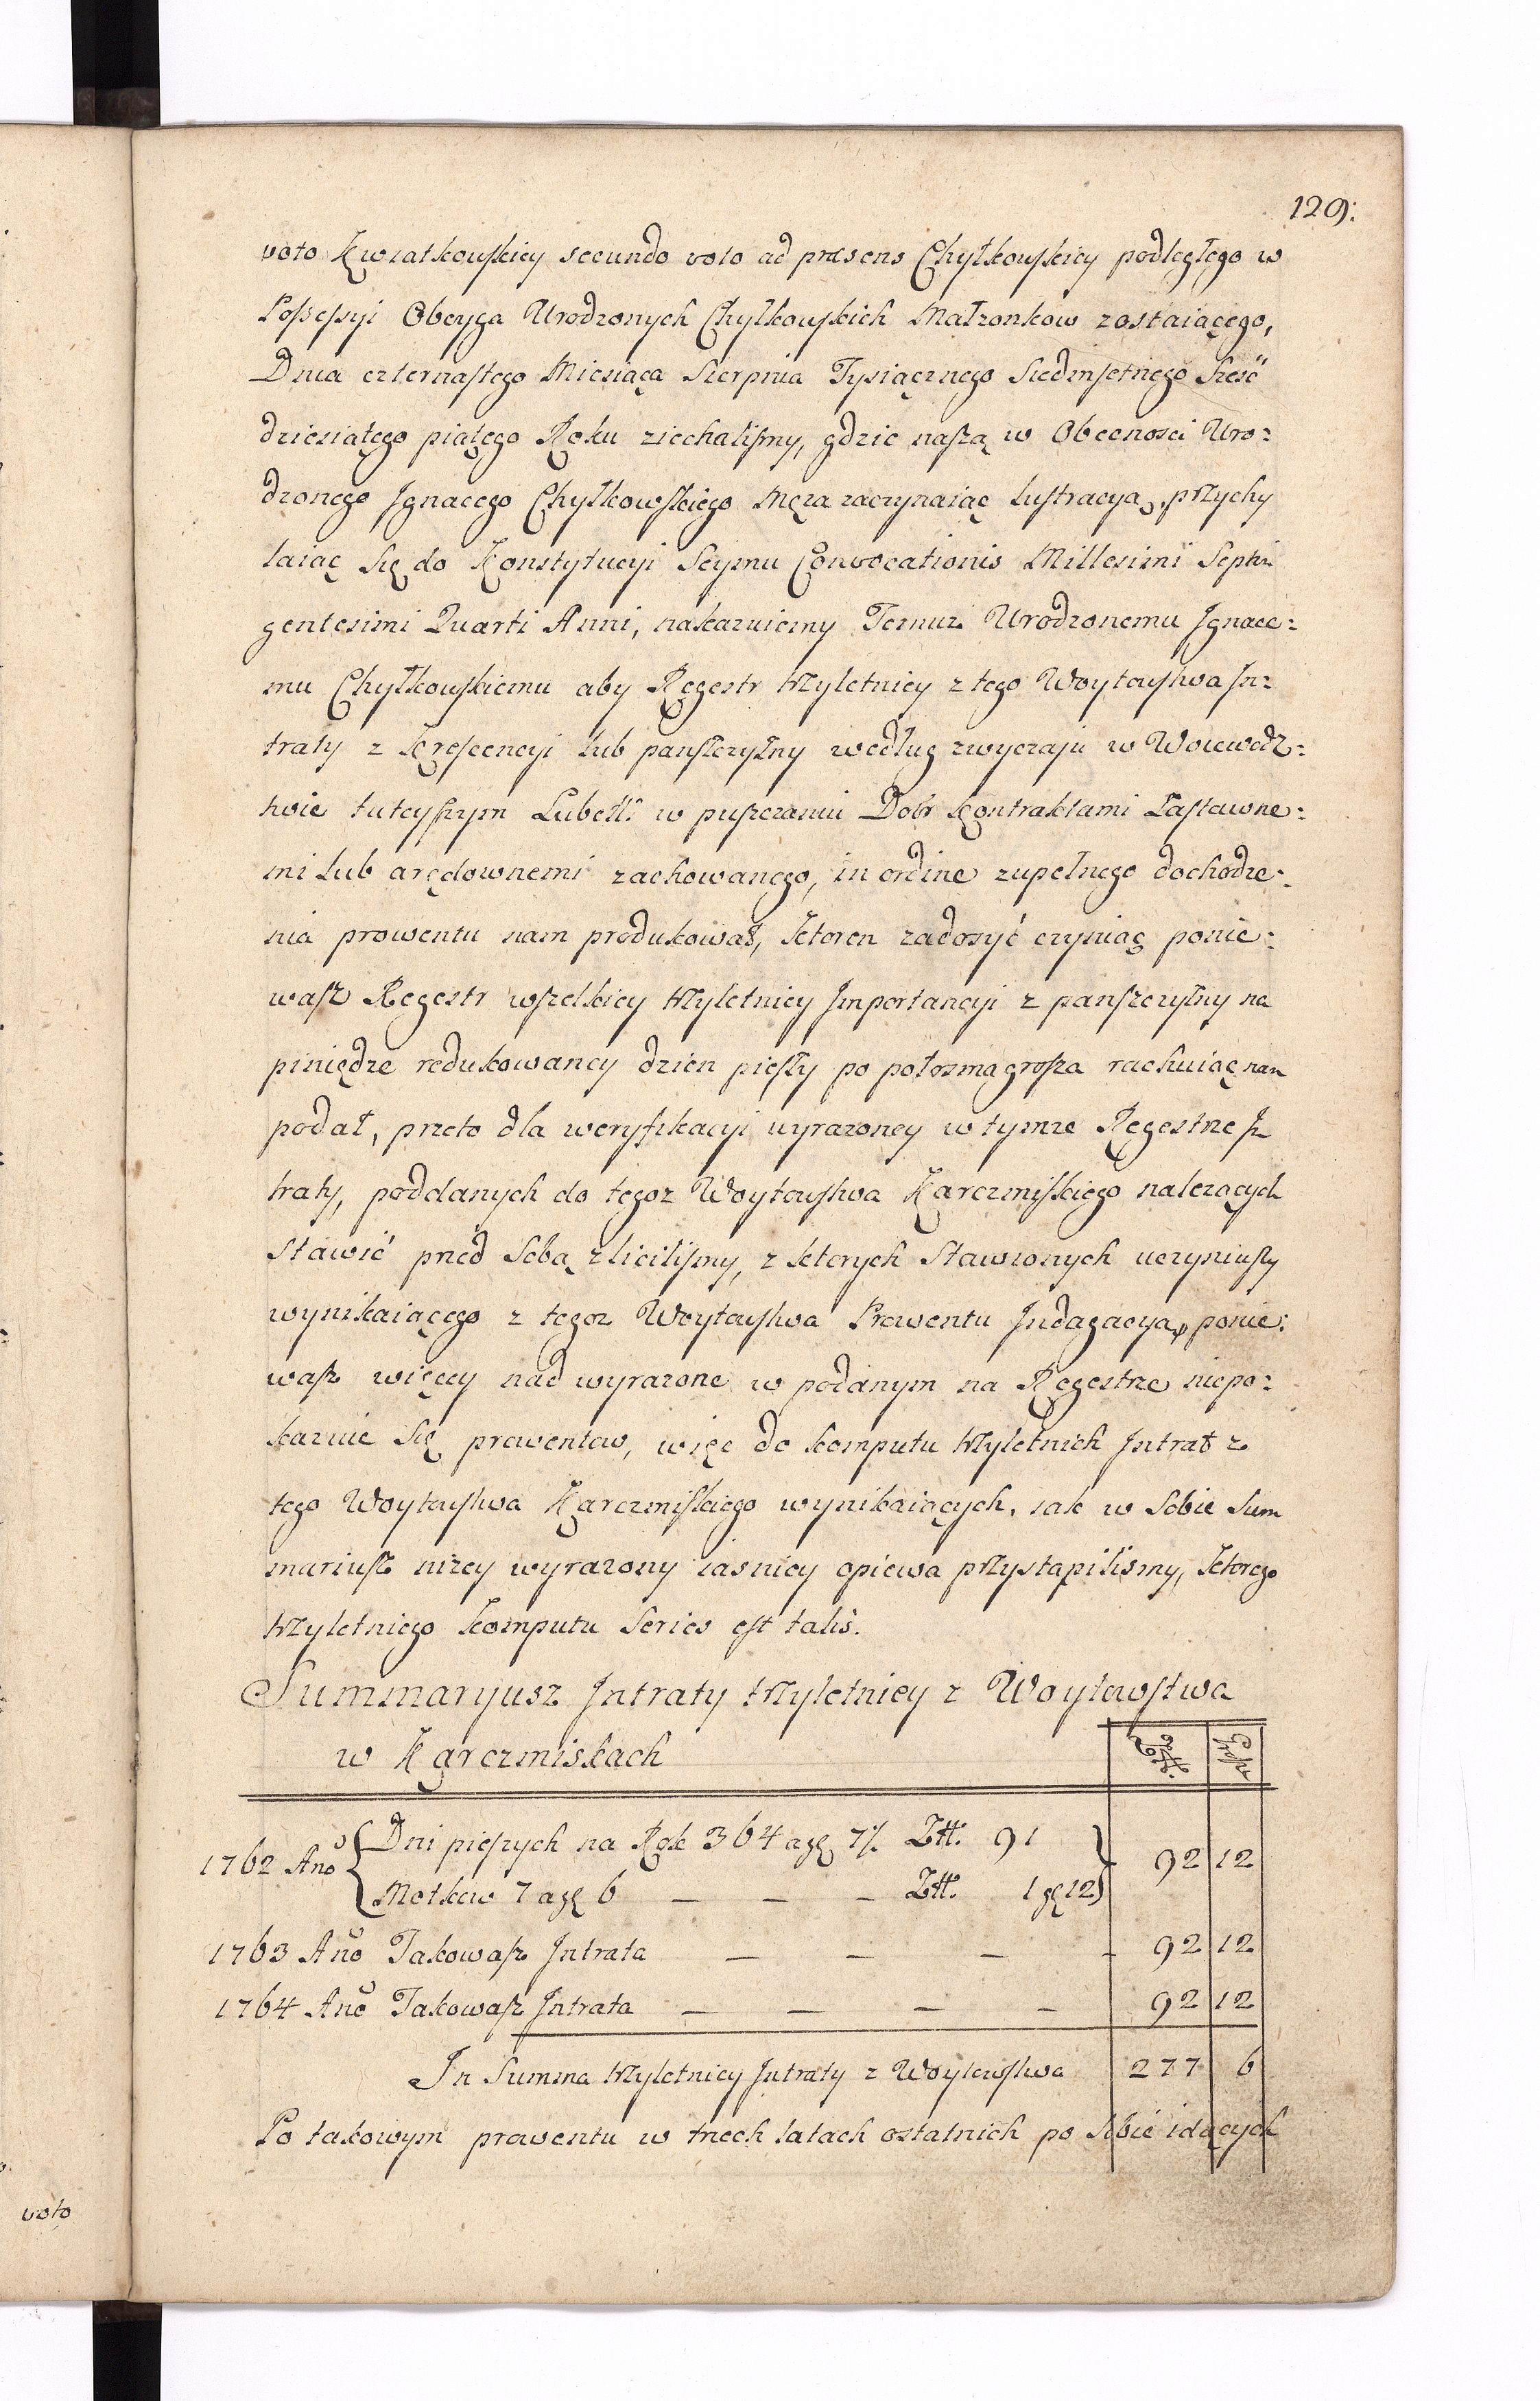 129.
voto Kwiatkowskiey secundo voto ad præsens Chyłkowskiey podległego w
Possessyi Obcyga Urodzonych Chyłkowskich Małzonkow zostaiącego,
Dnia czternastego Miesiąca Sierpnia Tysiącznego Siedmsetnego Sześć
dziesiątego piątego Roku ziechalismy, gdzie naszą w Obecnosci Uro:
dzonego Jgnacego Chyłkowskiego Męza zaczynaiąc Lustracyą, przychy
laiąc Się do Konstytucyi Seymu Convocationis Millesimi Septin
gentesimi Quarti Anni, nakazuiemy Temuz Urodzonemu Jgnace:
mu Chyłkowskiemu aby Regestr trzyletniey z tego Woytowstwa Jn:
traty z Krescencyi lub panszczyzny według zwyczaju w Woiewodz:
twie tuteyszym Lubel: w puszczaniu Dobr kontraktami Zastawne:
mi lub arędownemi zachowanego, in ordine zupełnego dochodze:
nia prowentu nam produkował, Ktoren zadosyć czyniąc ponie:
wasz Regestr wszelkiey trzyletniey Jmportancyi z panszczyzny na
piniędze redukowaney dzien pieszy po połosma grosza rachuiąc nam
podał, przeto dla weryfikacyi wyrazoney w tymze Regestrze Jn
traty, poddanych do tegoz Woytowstwa Karczmiskiego nalezących
Stawić przed Sobą zlicilismy, z ktorych Stawionych uczyniwszy
wynikaiącego z tegoz Woytowstwa Prowentu Jndagacyą, ponie:
wasz więcey nad wyrazone w podanym na Regestrze niepo:
kazuie Się prowentow, więc do komputu trzyletnich Jntrat z
tego Woytowstwa Karczmiskiego wynikaiących, iak w Sobie Sum
mariusz nizey wyrazony iasniey opiewa przystąpilismy, Ktorego
trzyletniego komputu Series est talis.
Summaryusz Jntraty trzyletniey z Woytowstwa
w Karczmiskach
Złł: Grosz
1762 Año Dni pieszych na Rok 364 a gę 7½ Złł. 91
Motkow 7 a gę 6 — — — Złł. 1 gę 12 92 12
1763 Año Takowasz Jntrata — — — 92 12
1764 Año Takowasz Jntrata — — — — 92 12
Jn Summa trzyletniey Jntraty z Woytowstwa 277 6
Po takowym prowentu w trzech latach ostatnich po Sobie idących
voto